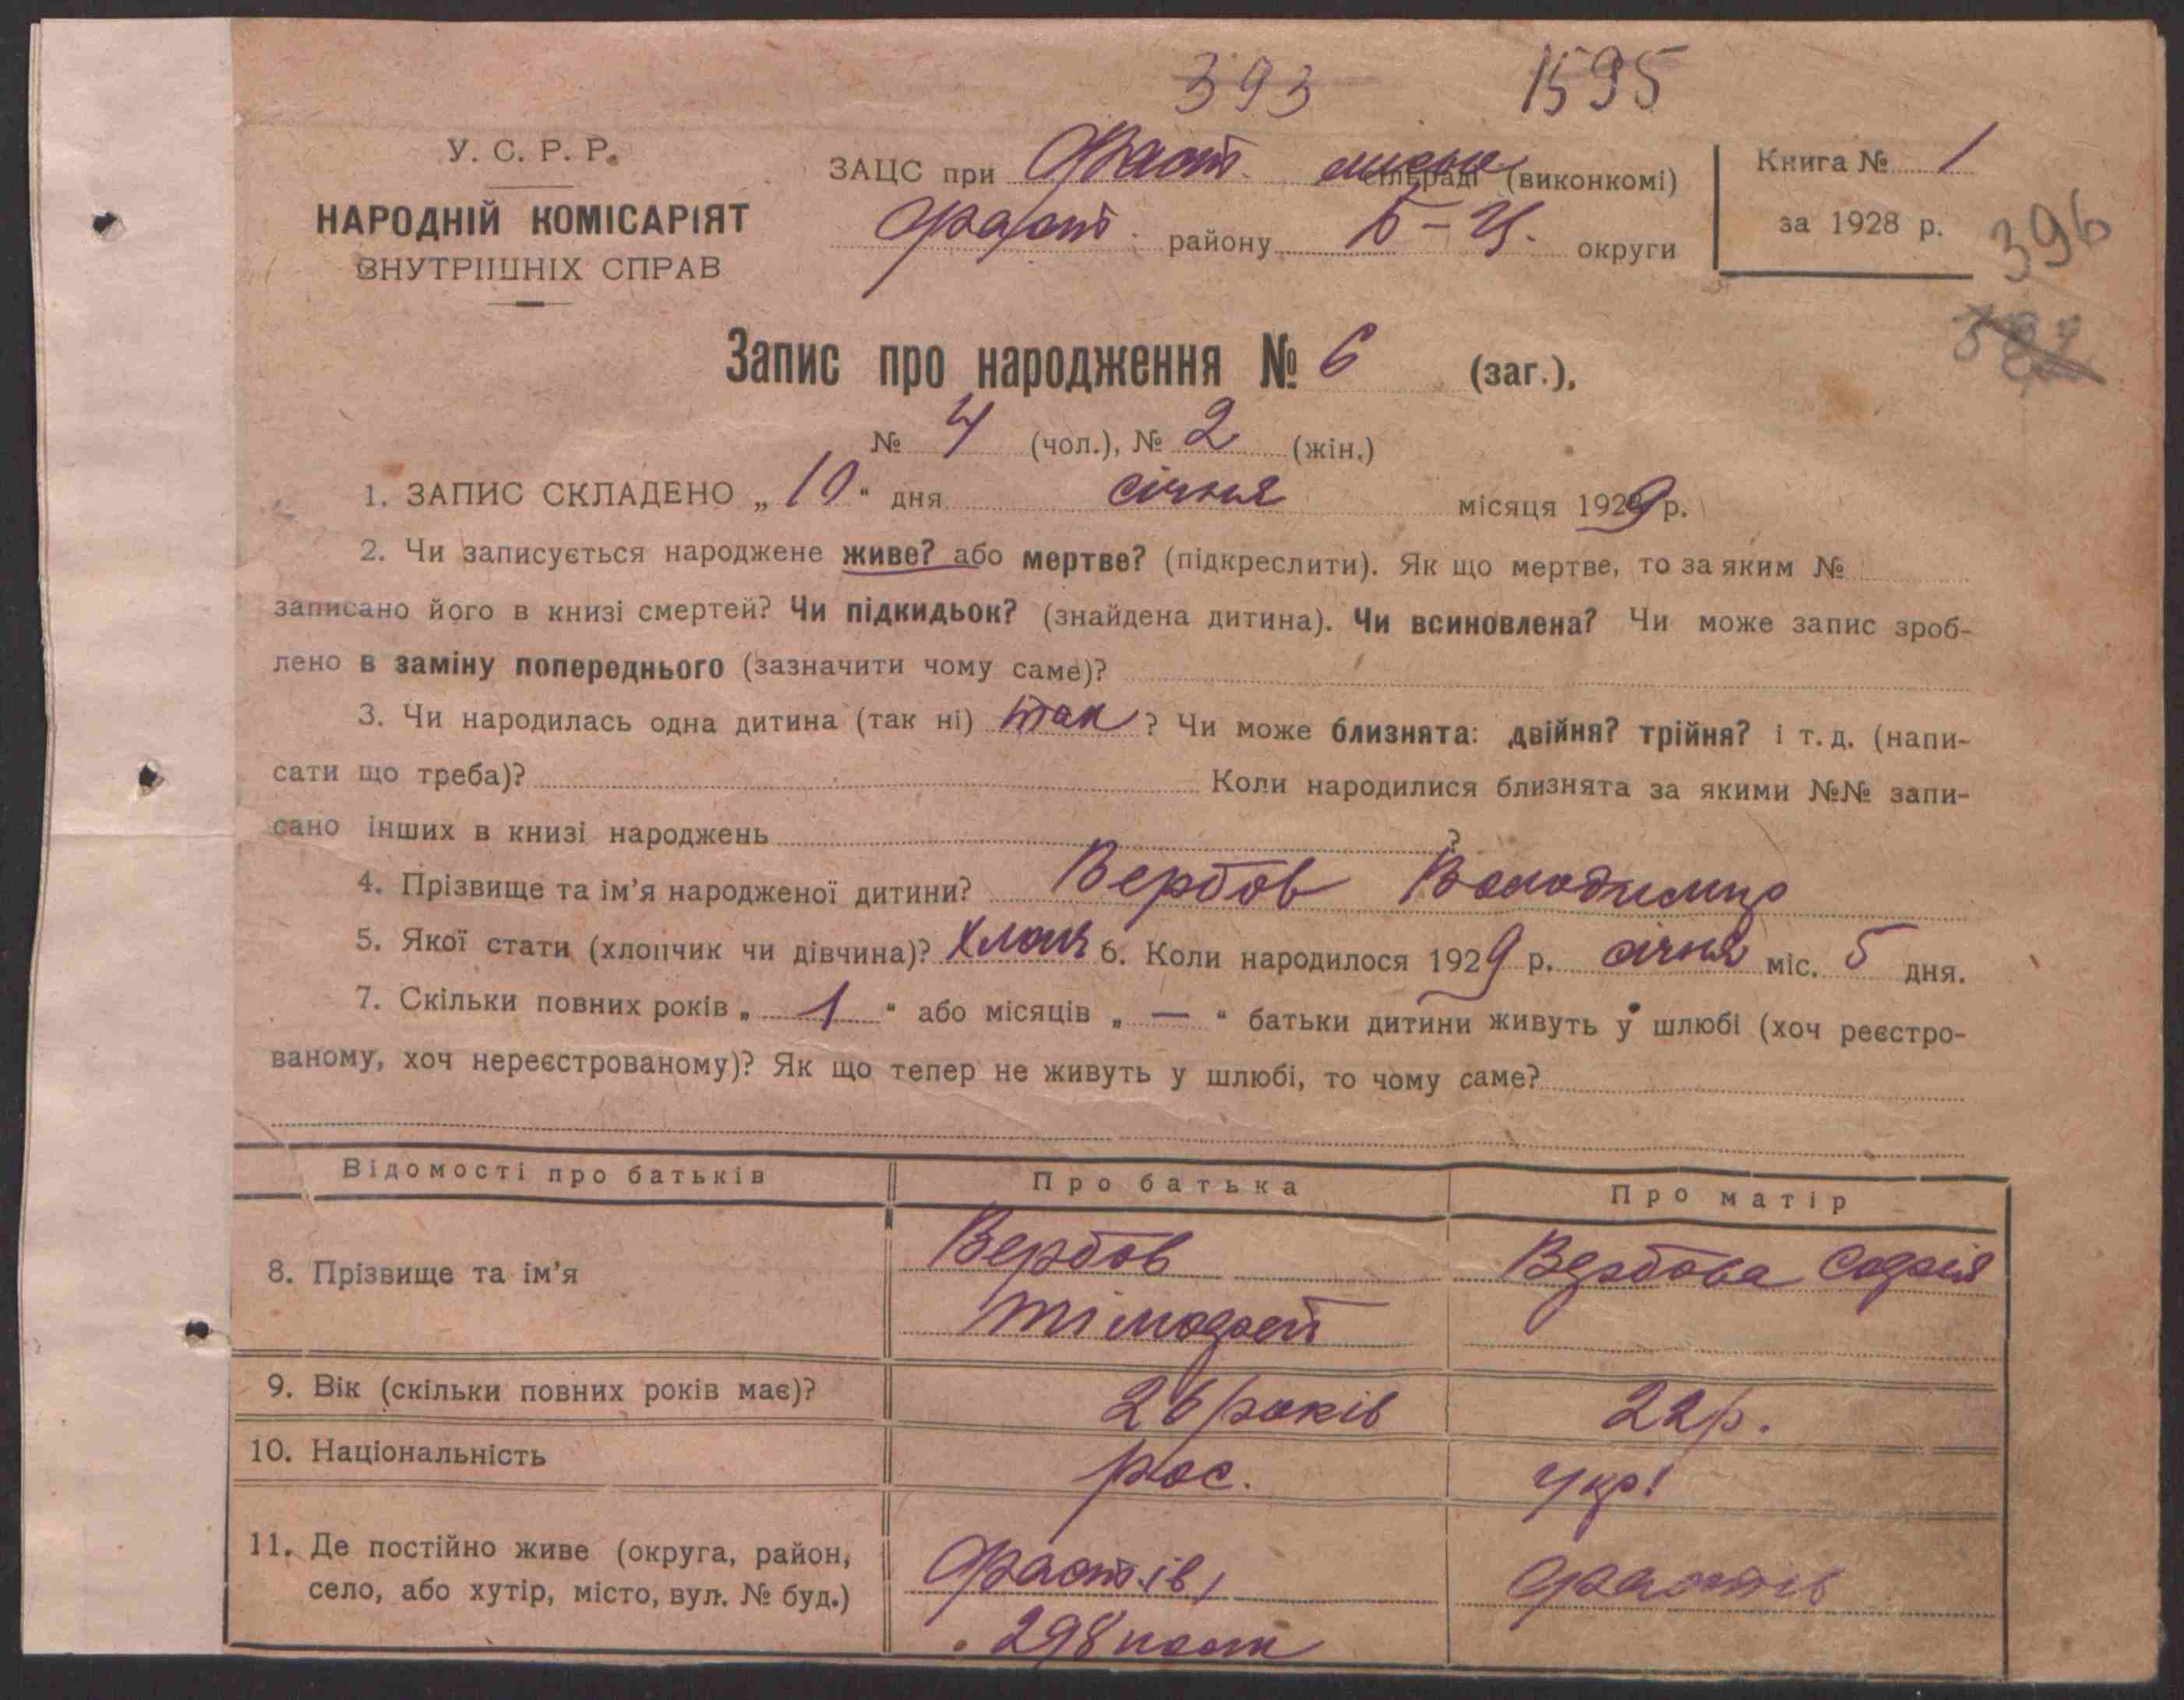 393 1595
У. С. Р. Р.
НАРОДНІЙ КОМІСАРІЯТ
ВНУТРІШНІХ СПРАВ
ЗАЦС при Фаст. сільраді (виконкомі)
Фаст. району Б-Ц. округи
Книга № 1
за 1928 р.
396
382
Запис про народження № 6 (заг.),
№ 4 (чол.), № 2 (жін.)
1. ЗАПИС СКЛАДЕНО „10“ дня січня місяця 1929 р.
2. Чи записується народжене живе? або мертве? (підкреслити). Як що мертве, то за яким №
записано його в книзі смертей? Чи підкидьок? (знайдена дитина). Чи всиновлена? Чи може запис зроб-
лено в заміну попереднього (зазначити чому саме)?
3. Чи народилась одна дитина (так ні) так ? Чи може близнята: двійня? трійня? і т. д. (напи-
сати що треба)? Коли народилися близнята за якими №№ запи-
сано інших в книзі народжень ?
4. Прізвище та ім’я народженої дитини? Вербов Володимир
5. Якої стати (хлопчик чи дівчина)? Хлопч 6. Коли народилося 1929 р. січня міс. 5 дня.
7. Скільки повних років „ 1 “ або місяців „ — “ батьки дитини живуть у шлюбі (хоч реєстро-
ваному, хоч нереєстрованому)? Як що тепер не живуть у шлюбі, то чому саме?
Відомості про батьків Про батька Про матір
8. Прізвище та ім’я Вербов Вербова Софія
Тімофей
9. Вік (скільки повних років має)? 26 років 22 р.
10. Національність рос. Укр!
11. Де постійно живе (округа, район, Фастів, Фастів
село, або хутір, місто, вул. № буд.)
298